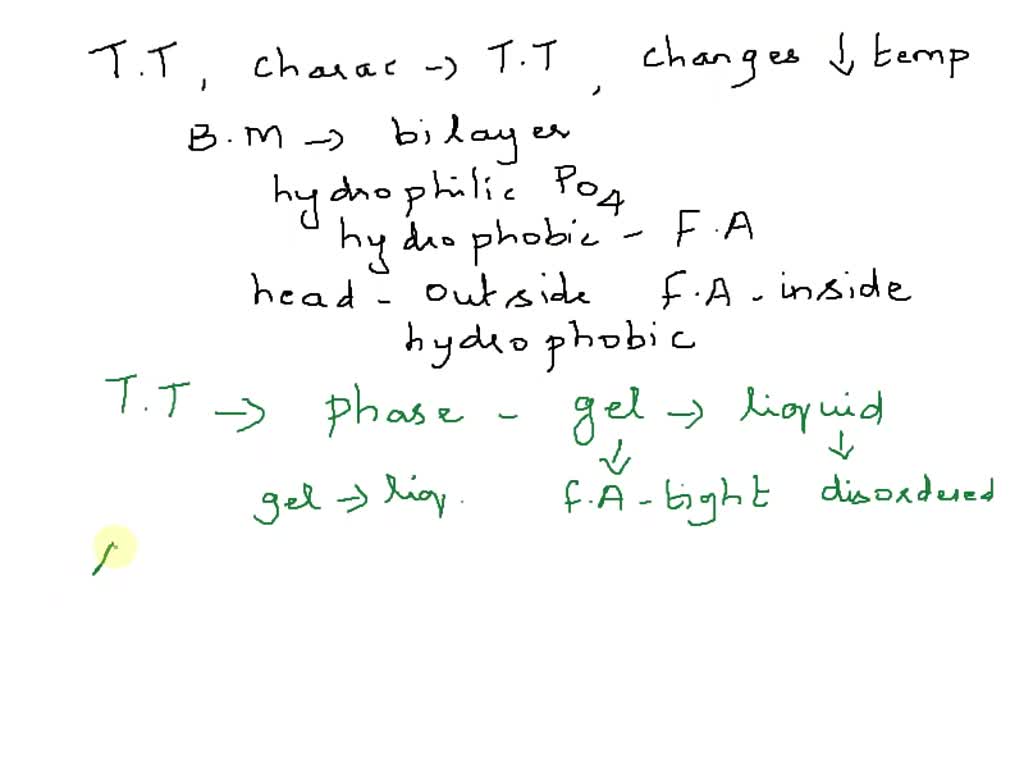 T.T, charac → T.T, changes ↓ temp
B.M → bilayer
hydrophilic PO4
hydrophobic - F.A
head - outside F.A - inside
hydrophobic
T.T → phase - gel → liquid
↓ ↓
gel → liq. F.A - tight disordered